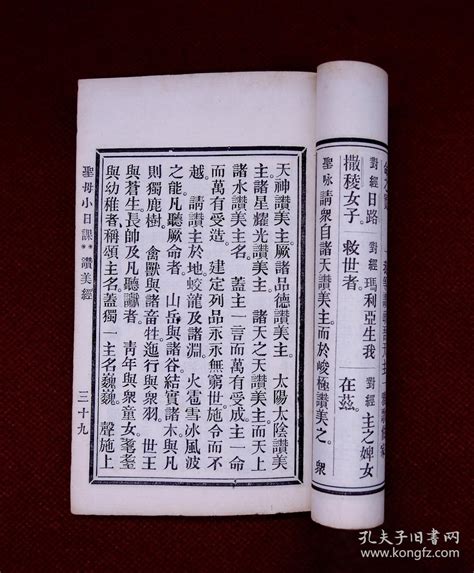 對經日路 對經瑪利亞生我 對經主之婢女
撒稜女子。 救世者。 在茲。
聖咏請衆自諸天讚美主。而於峻極讚美之。衆
天神讚美主。厥諸品德讚美主。 太陽太陰讚美
主。諸星耀光讚美主。 諸天之天讚美主。而天上
諸水讚美主名。 蓋主一言而萬有受成。主一命
而萬有受造。 建定列品永永無窮。世施令而不
越。 請讚主於地。蛟龍及諸淵。 火雹雪冰風波
之能凡聽厥命者。 山岳與諸谷。結實諸木與凡
則獨鹿樹。 禽獸與諸畜牲。行與衆羽。 世王
與蒼生。長帥及凡聽者。 青年與衆童女。耄耋
與幼稚者稱頌主名。蓋獨一主名巍巍。 聲施上
聖母小日課**讚美經 三十九
孔夫子旧书网
www.kongfz.com